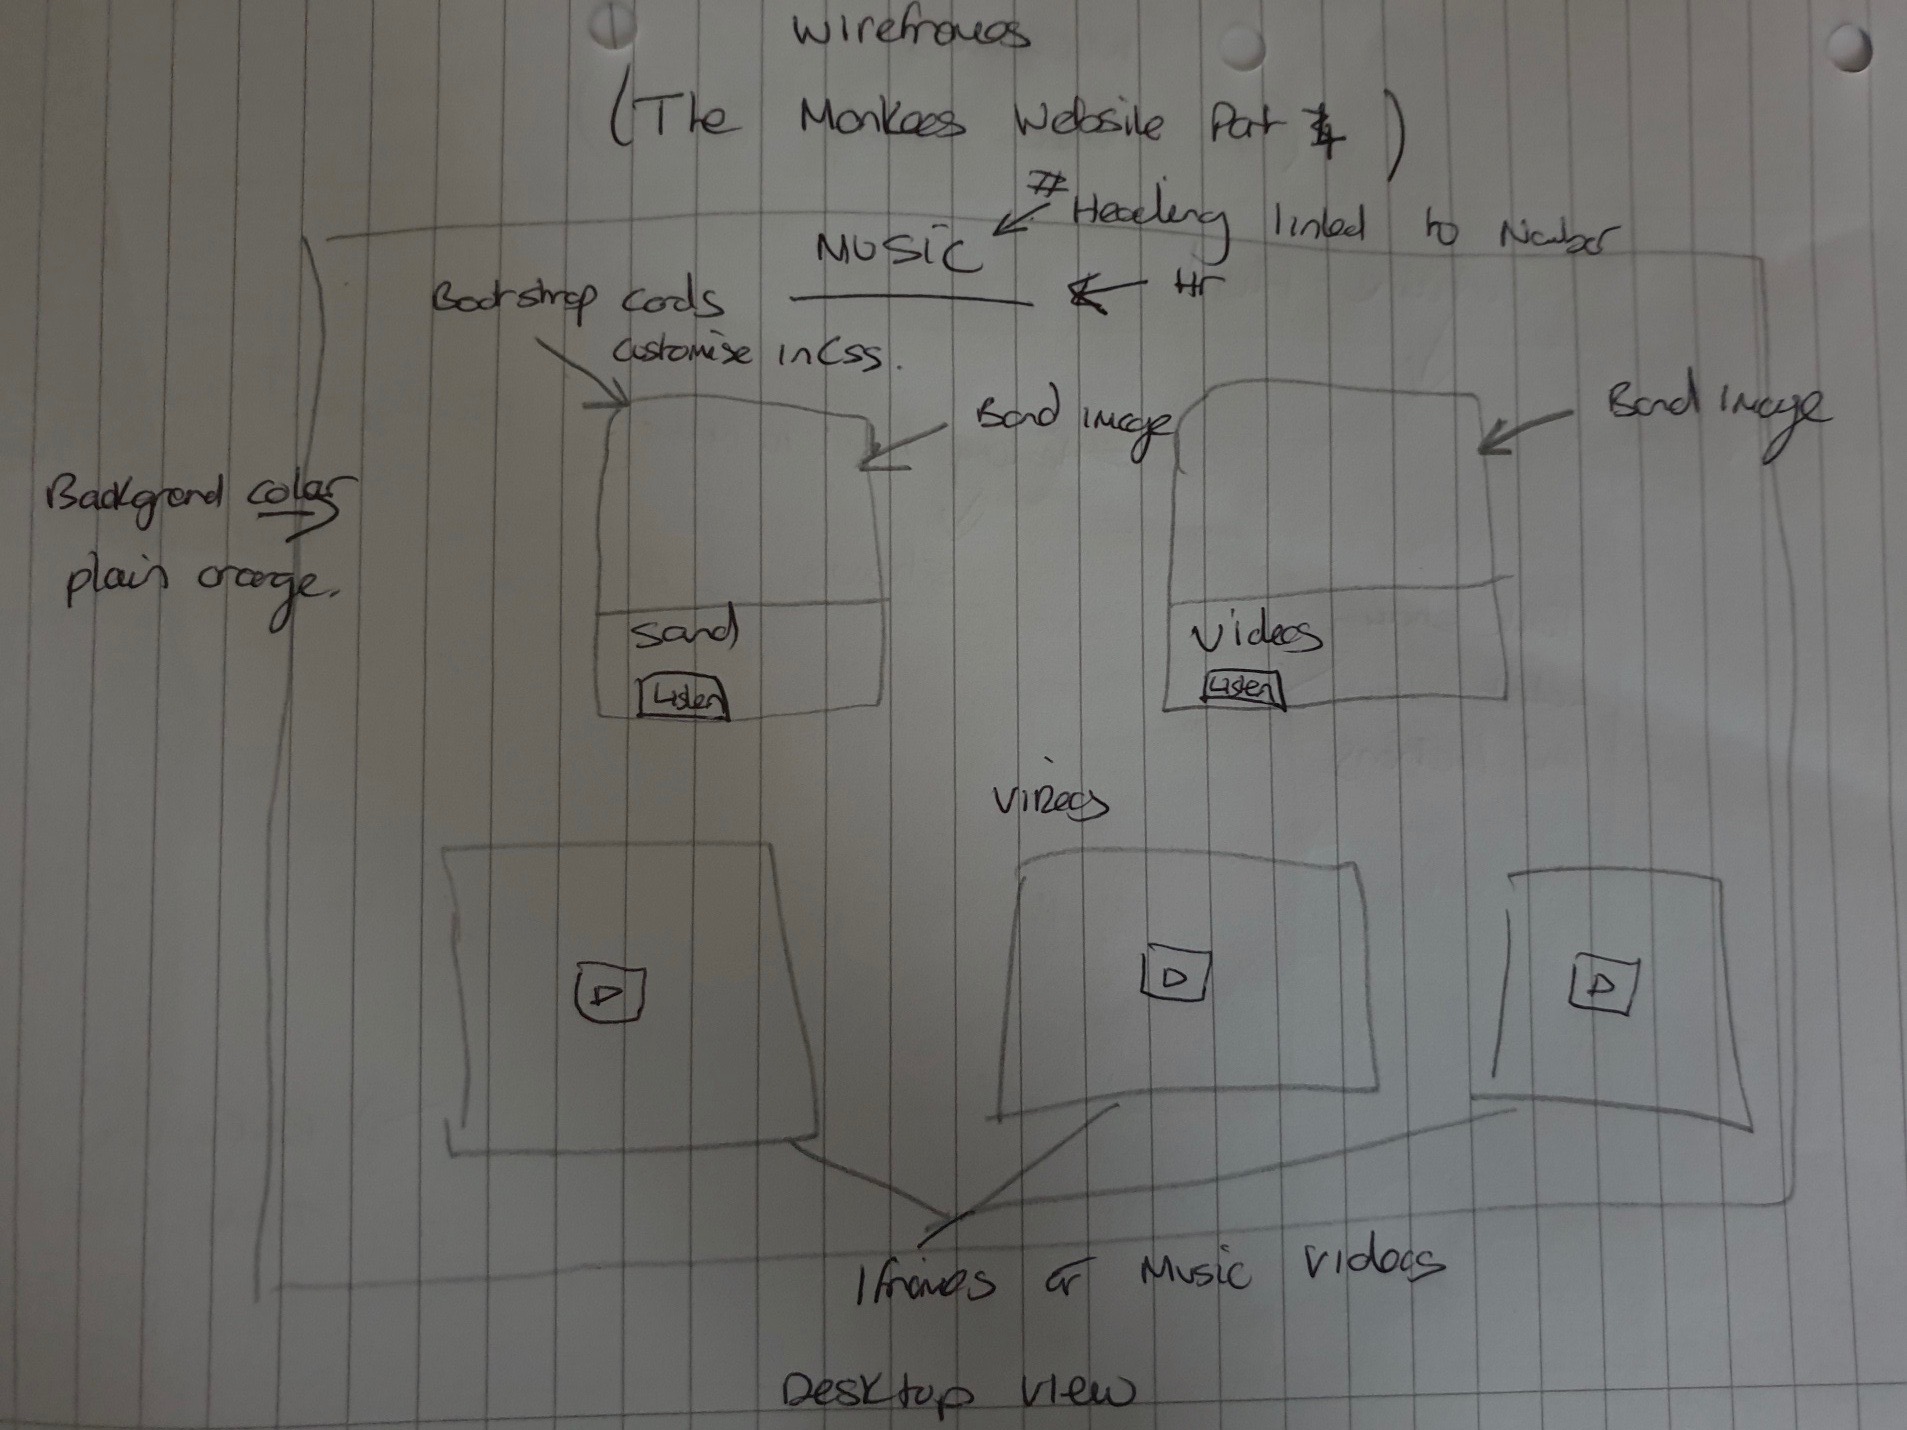 Wireframes
(The Monkees Website Part 4)
# Heading linked to Navbar
MUSIC
Hr
Bootstrap cards
customise in Css.
Band image
Band image
Background color
plain orange.
Sand
Videos
Listen
Listen
Videos
Iframes or Music Videos
Desktop view